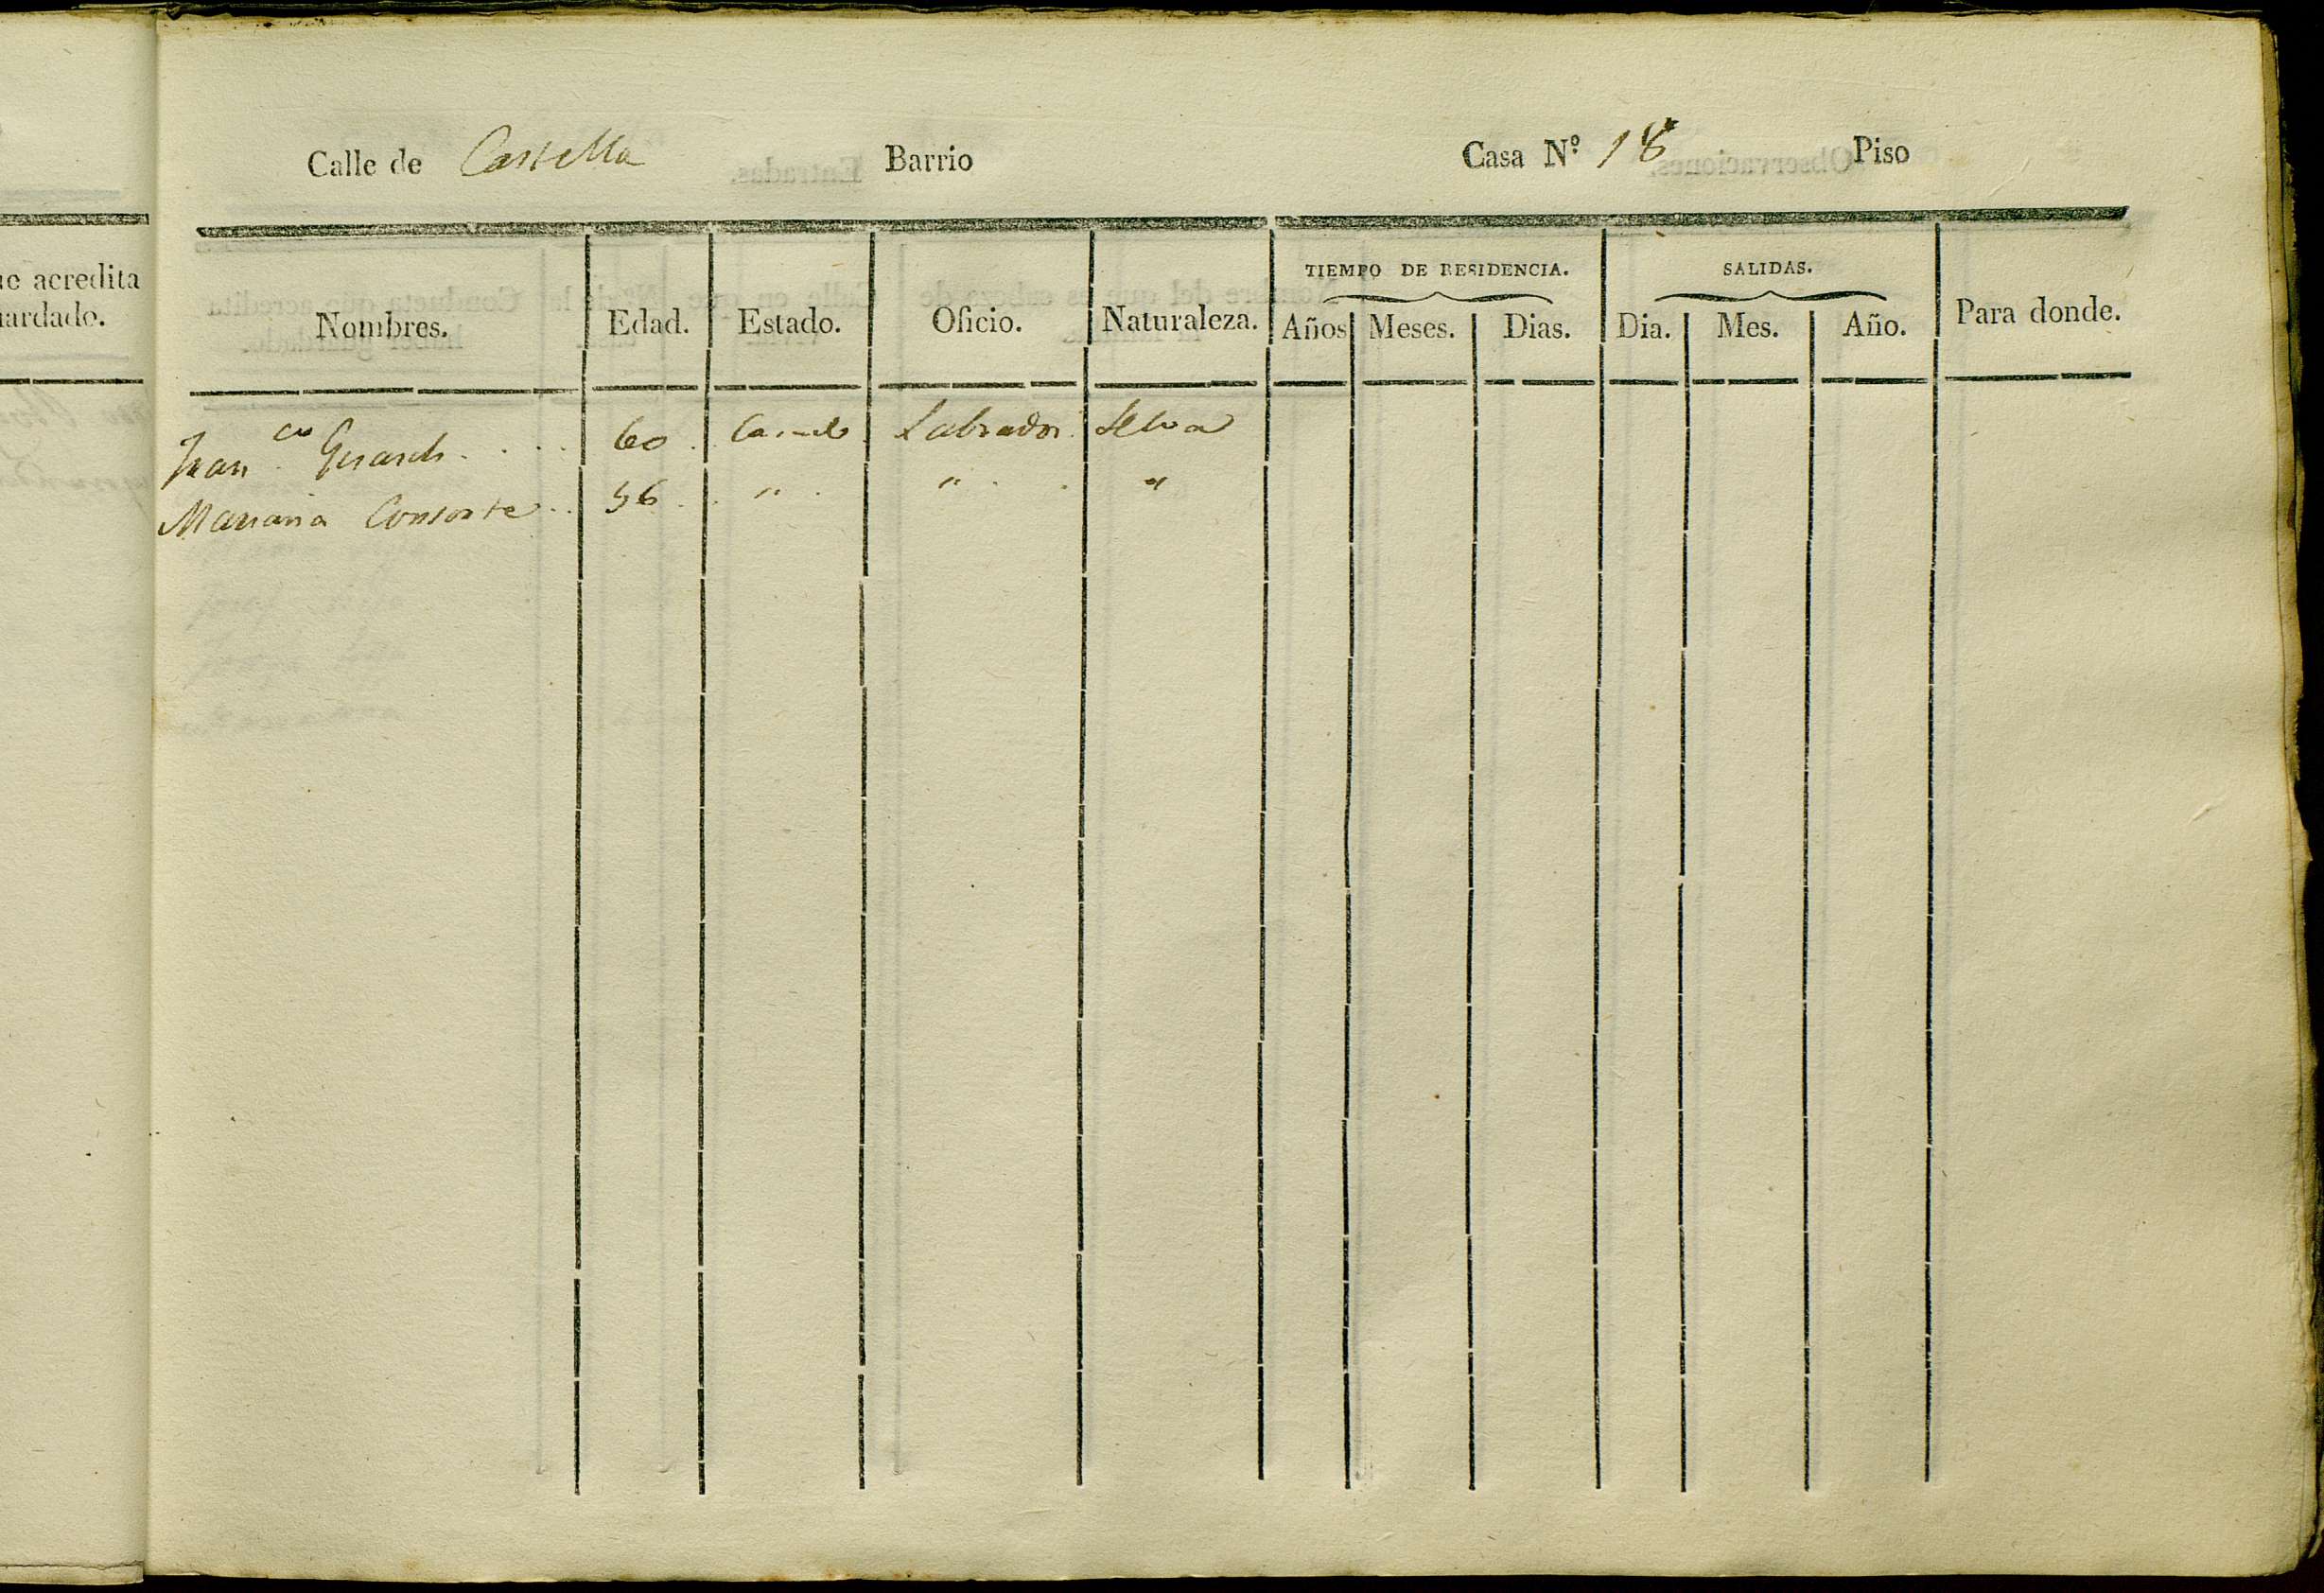 ue acredita
uardado.
Calle de Castella Barrio Casa Nº 18 Piso
TIEMPO DE RESIDENCIA. SALIDAS.
Nombres. Edad. Estado. Oficio. Naturaleza. Años Meses. Dias. Dia. Mes. Año. Para donde.
Fran.co 60 Casado Labrador Selva
Mariana Consorte 56 " " "